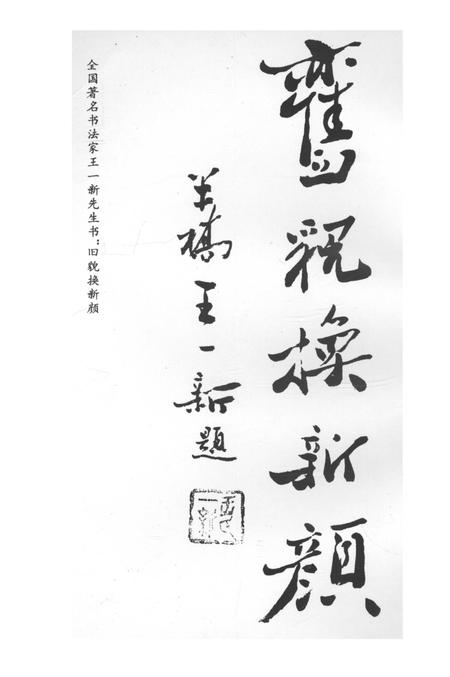 舊貌換新顔
羊橋王一新題
全国著名书法家王一新先生书：旧貌换新颜